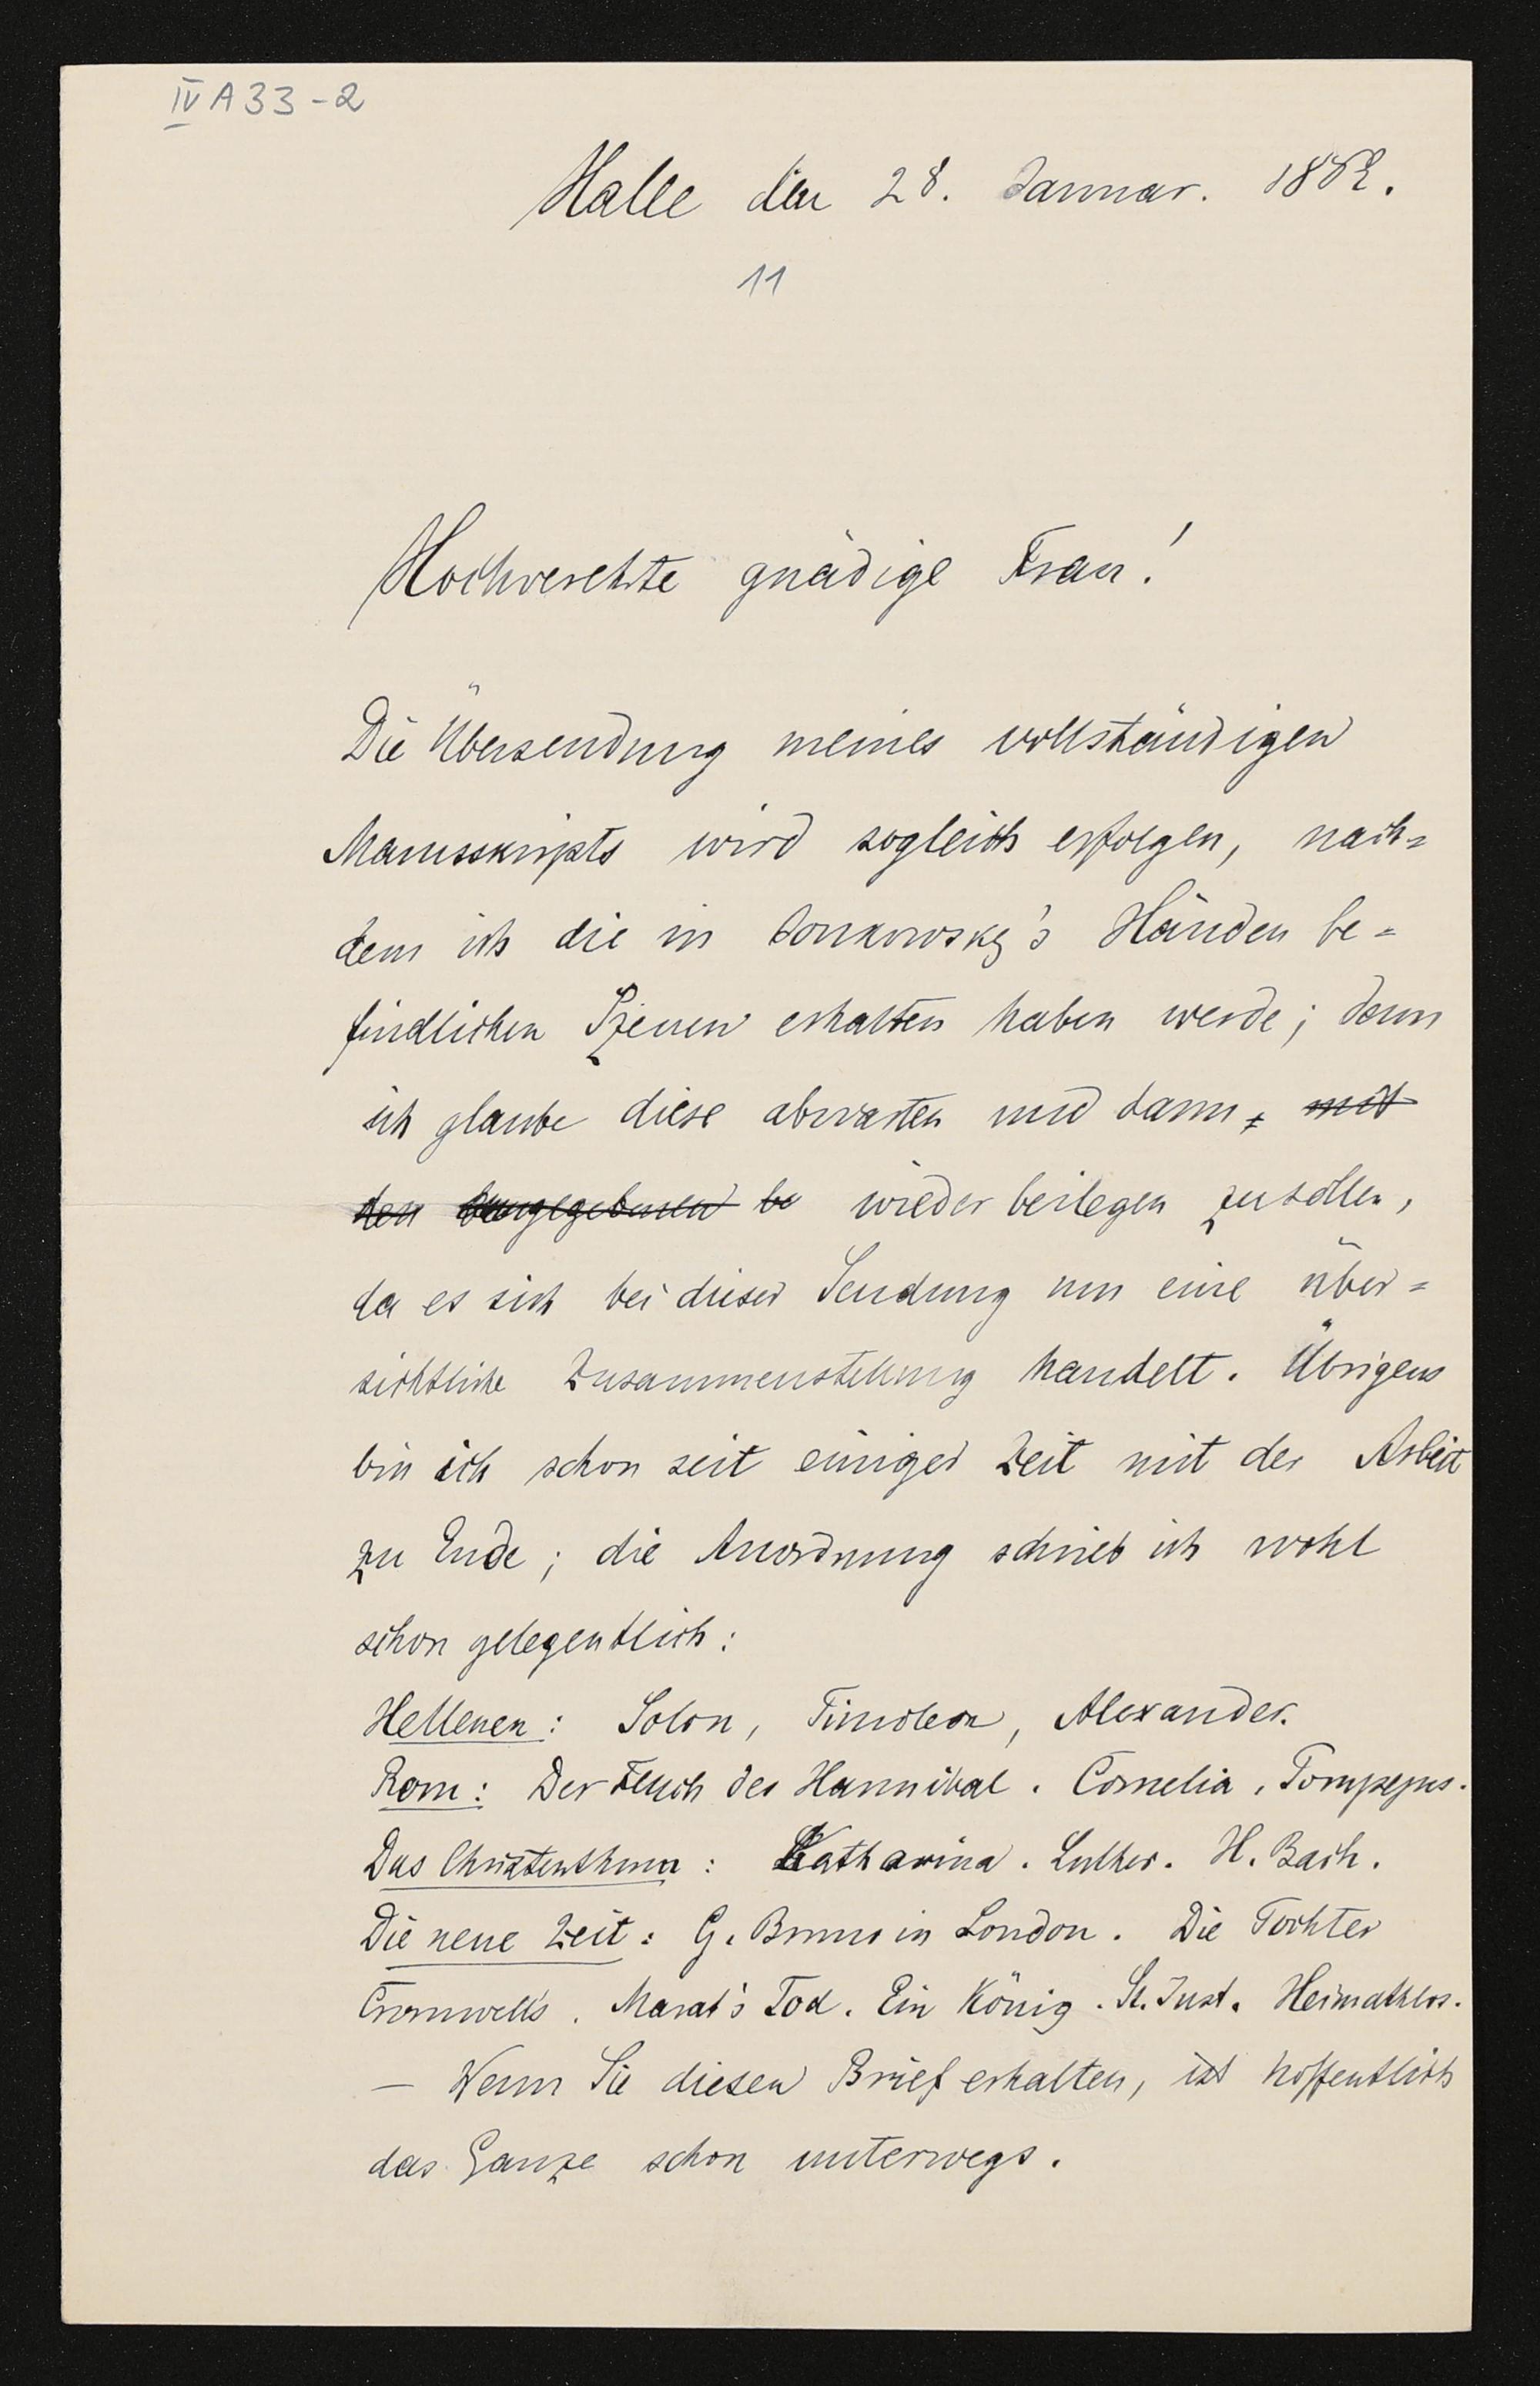 IV A 33 - 2
Halle den 28. Januar. 1882.
11
Hochverehrte gnädige Frau!
Die Übersendung meines vollständigen
Manusskripts wird sogleich erfolgen, nach=
dem ich die in Joukowsky's Händen be=
findlichen Szenen erhalten haben werde; denn
ich glaube diese abwarten und dann, mit
den be wieder beilegen zu sollen,
da es sich bei dieser Sendung um eine über=
sichtliche Zusammenstellung handelt. Übrigens
bin ich schon seit einiger Zeit mit der Arbeit
zu Ende; die Anordnung schrieb ich wohl
schon gelegentlich:
Hellenen: Solon, Timoleon, Alexander.
Rom: Der Fluch des Hannibal. Cornelia. Pompejus.
Das Christenthum: Katharina. Luther. H. Bach.
Die neue Zeit: G. Bruno in London. Die Tochter
Cromwells. Marat's Tod. Ein König. St. Just. Heimathlos.
— Wenn Sie diesen Brief erhalten, ist hoffentlich
das Ganze schon unterwegs.